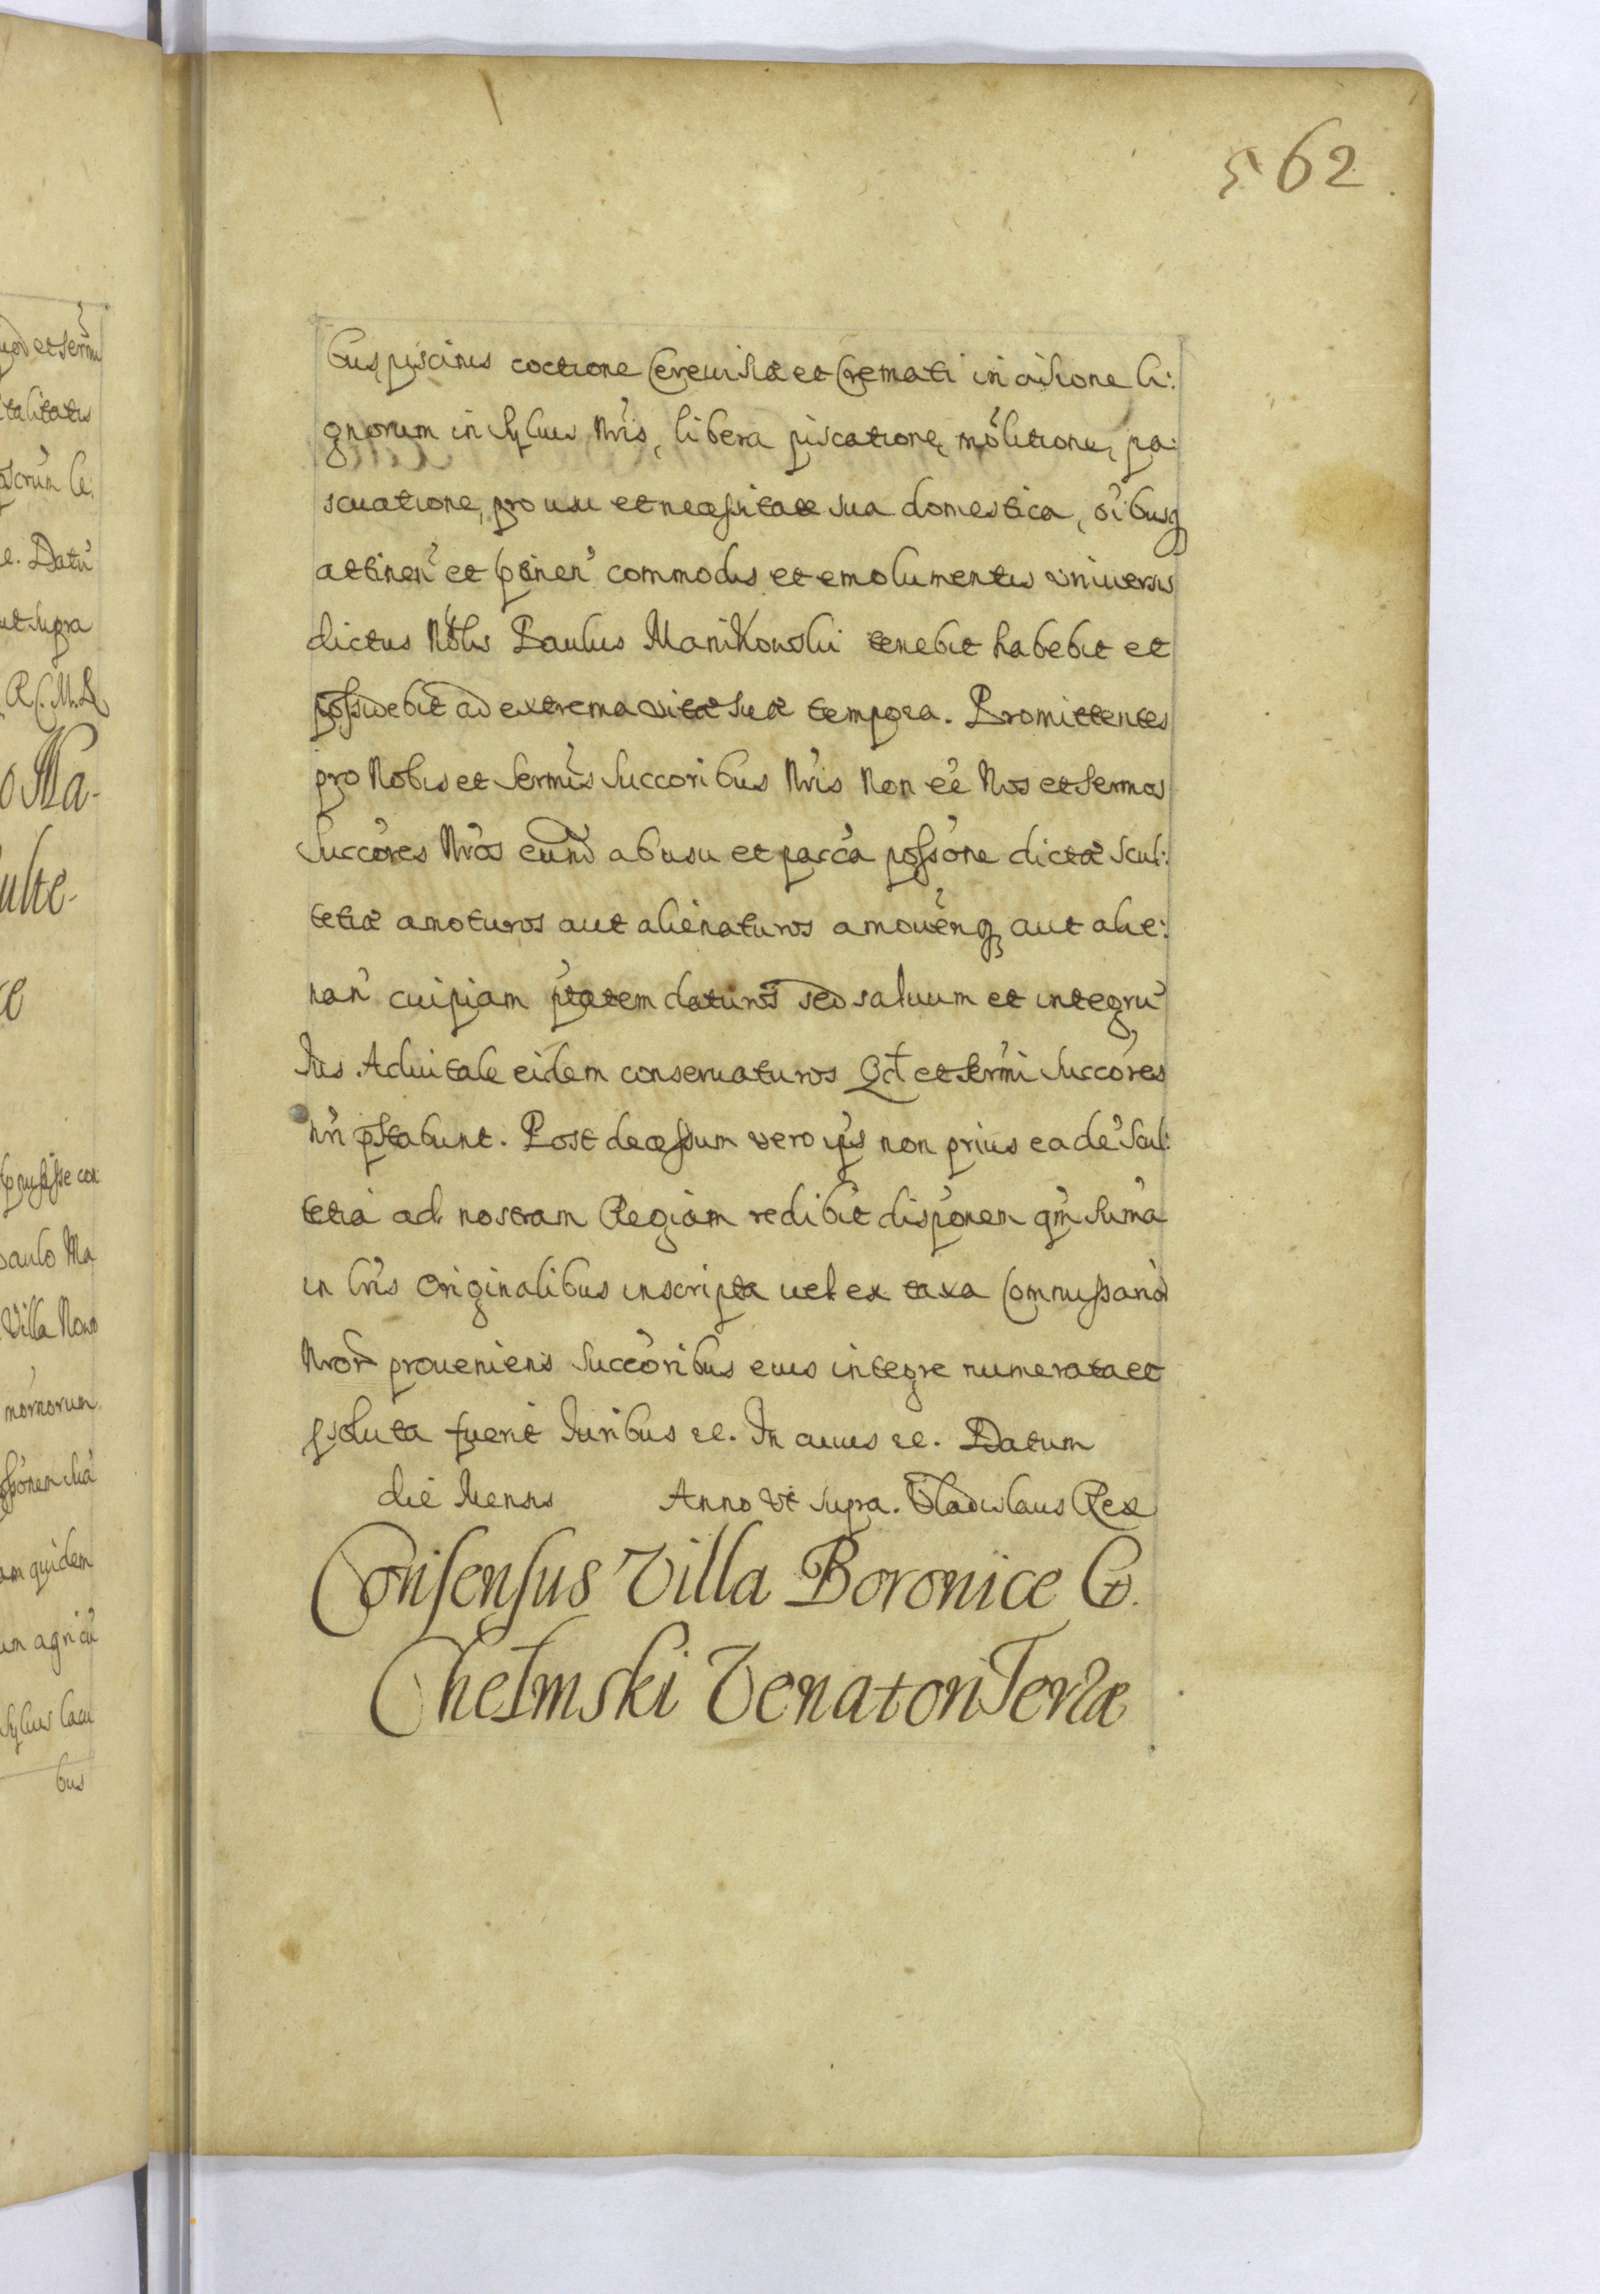 562
bus, piscinis coctione Cereuisiæ et Cremati incisione li:
gnorum in syluis Nr̃is, libera piscatione, molitione, pa:
scuatione, pro usu et necessitate sua domestica, oĩbusq
attinen̄ et ptinen̄ commodis et emolumentis vniuersis
dictus Noblis Paulus Manikowski tenebit habebit et
possidebit ad extrema vitæ suæ tempora. Promittentes
pro Nobis et Sermĩs Succoribus Nr̃is Non eē Nos et Sermos
Succores Nr̃os eund ab usu et pacca possone dictæ Scul:
tetiæ amoturos aut alienaturos amouenq, aut alie:
nan̄ cuipiam ptatem daturos sed saluum et integrū
Ius Aduitale eidem conseruaturos Qd et Sermi Succores
nr̃i pstabunt. Post decessum vero ips non prius eadē Scul:
tetia ad nostram Regiam redibit disponen qm̄ Sum̄a
in lr̃is Originalibus inscripta uel ex taxa Commissario
Nror proueniens Succoribus eius integre numerata et
psoluta fuerit Iuribus ec. In cuius ec. Datum
die Mensis Anno Vt supra. Vladislaus Rex
Consensus Villa Boronice G.
Chełmski Venatori Terræ
uod et Sermi
italitatis
e. Datū
ut supra
R. C. M. L
o Ma-
ulte-
ce
pmisisse con
paulo Ma
Villa Nowo
am quidem
um agricū
syluis lacu
bus